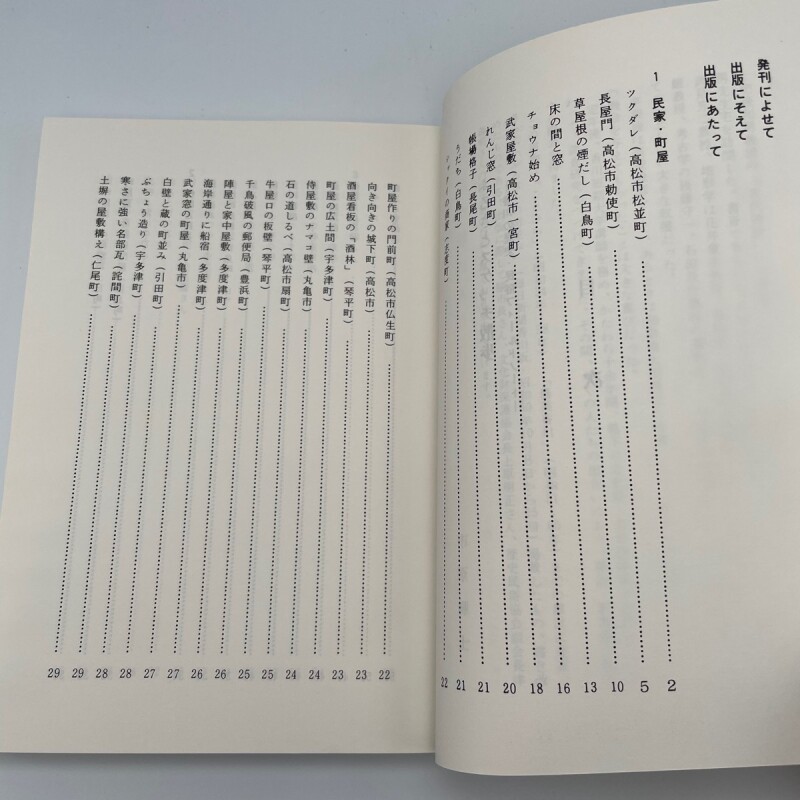 発刊によせて
出版にそえて
出版にあたって
1 民家・町屋
ツクダレ（高松市松並町）……2
長屋門（高松市勅使町）……5
草屋根の煙だし（白鳥町）……10
床の間と窓……13
チョウナ始め……16
武家屋敷（高松市一宮町）……18
れんじ窓（引田町）……20
帳場格子（長尾町）……21
うだち（白鳥町）……21
の商家（志度町）……22
町屋作りの門前町（高松市仏生町）……22
向き向きの城下町（高松市）……23
酒屋看板の「酒林」（琴平町）……23
町屋の広土間（宇多津町）……24
侍屋敷のナマコ壁（丸亀市）……24
石の道しるべ（高松市扇町）……25
牛屋口の板壁（琴平町）……25
千鳥破風の郵便局（豊浜町）……26
陣屋と家中屋敷（多度津町）……26
海岸通りに船宿（多度津町）……27
武家窓の町屋（丸亀市）……27
白壁と蔵の町並み（引田町）……28
ぶちょう造り（宇多津町）……28
寒さに強い名部瓦（詫間町）……29
土塀の屋敷構え（仁尾町）……29